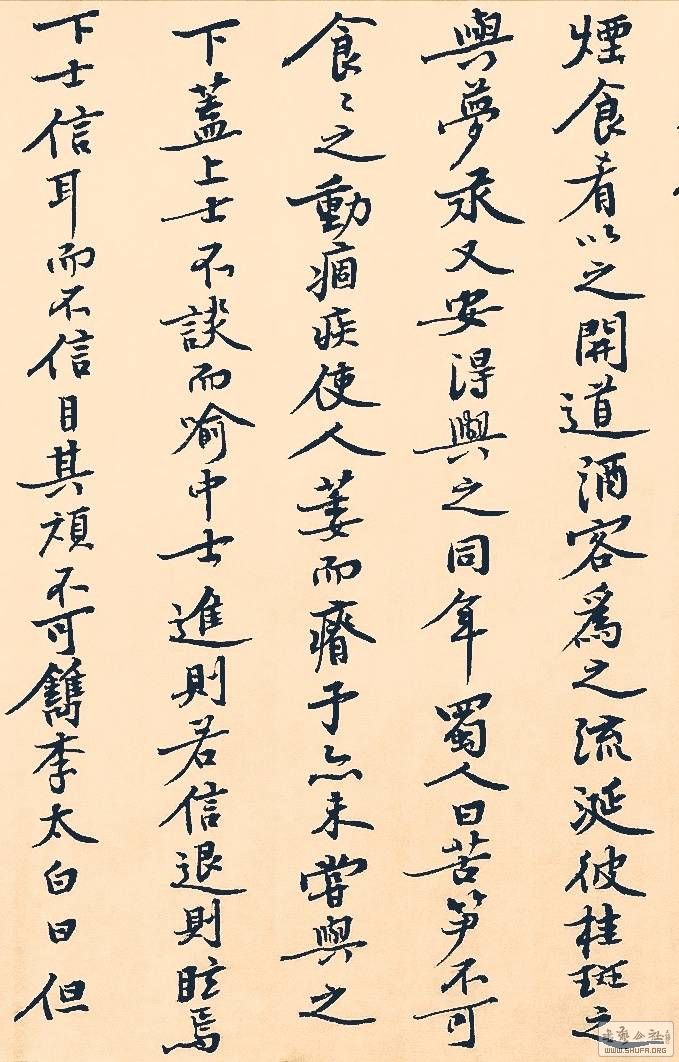 煙食肴以之開道酒客為之流涎彼桂斑之
與夢永又安得與之同年蜀人曰苦笋不可
食食〻之動痼疾使人萎而瘠予亦未嘗與之
下蓋上士不談而喻中士進則若信退則眩焉
下士信耳而不信目其頑不可鐫李太白曰但
WWW.SHUFA.ORG